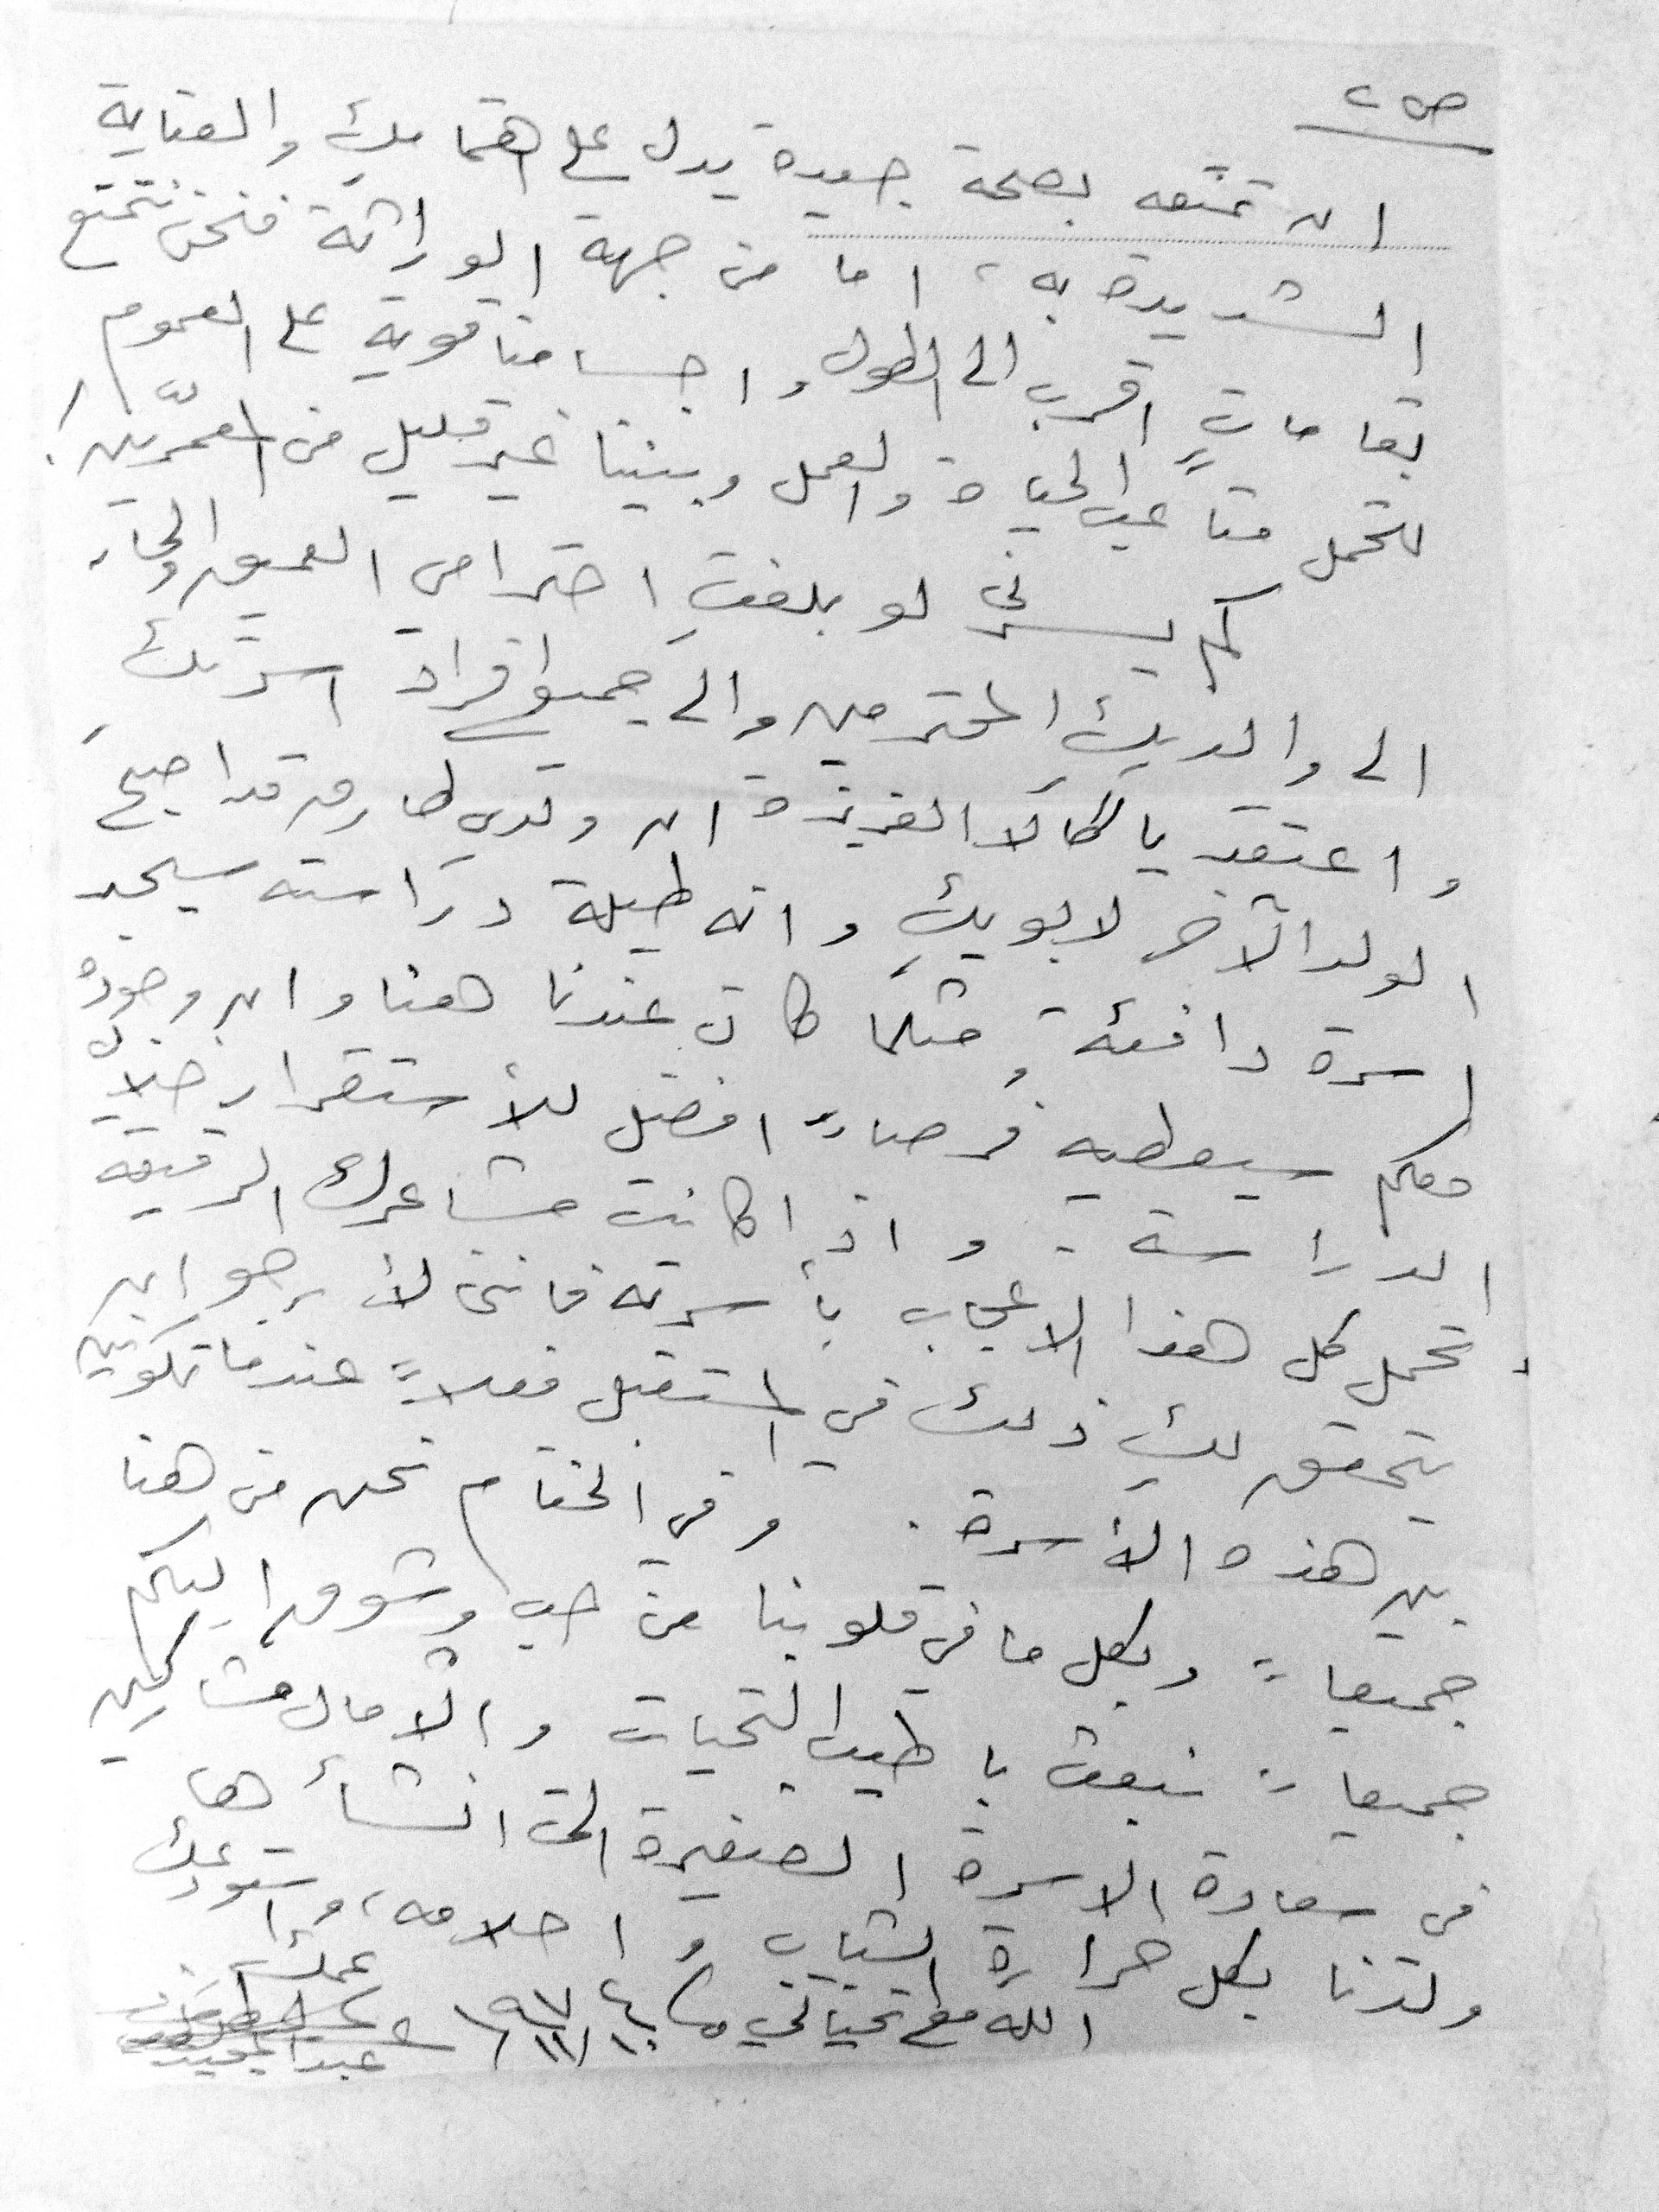 ص٢
ان تمتعه بصحة جيدة يدل على اهتمامكِ والعناية
الشديدة به، اما من جهة الوراثة فنحن نتمتع
بقاماتٍ اقرب الى الطول واجسامنا قوية على العموم
لتحمل متاعب الحياة والعمل وبيننا غير قليل من المعمّرين!
كم يسرني لو بلغتِ احترامي العميق والحار
الى والديكِ المحترمين والى جميع افراد اسرتكِ
واعتقد يا العزيزة ان ولدي طارق قد اصبح
الولد الآخر لابويكِ وانه طيلة دراسته سيجد
اسرة دافئة مثلما كان عندنا هنا وان وجوده
معكم سيعطيه فرصاً افضل للأستقرار خلال
الدراسة. واذا كانت مشاعركِ الرقيقة
تحمل كل هذا الاعجاب بأسرته فانني لأرجو ان
يتحقق لكِ ذلك في المستقبل فعلاً عندما تكونين
بين هذه الأسرة. وفي الختام نحن من هنا
جميعاً وبكل ما في قلوبنا من حب وشوق اليكم
جميعاً نبعث باطيب التحيات والآمال مشاركين
في سعادة الاسرة الصغيرة التي انشأها
ولدنا بكل حرارة الشباب واحلامه، واستودعكِ
الله مع تحياتي عمكِ
عبد